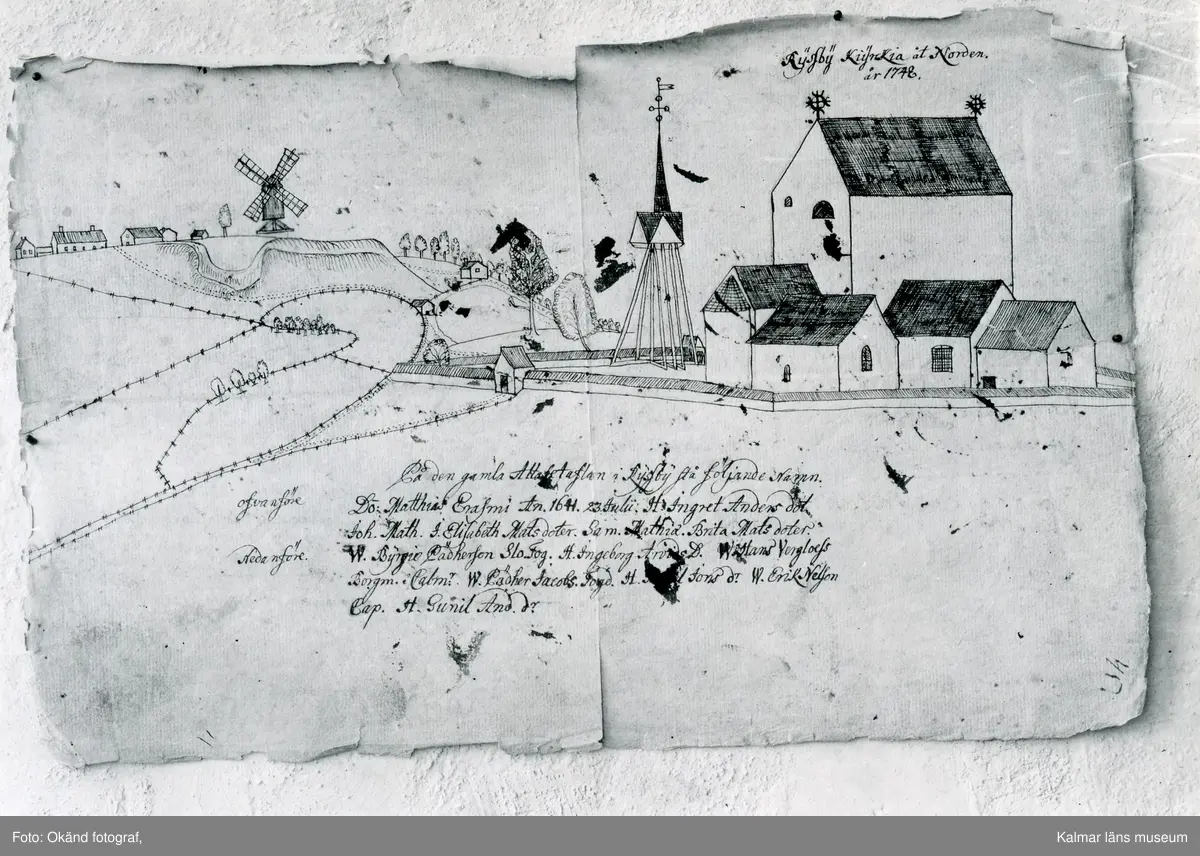 Rÿssbÿ Kiÿrkia åt Norden.
år 1748.
På den gamla Altartaflan i Rysby stå föliande Namn.
ofvanföre
Do: Matthias Erasmi An. 1641. 23 Julii. H. Ingret Anders dot.
Joh. Math. S. Elisabeth Mats doter. Sam. Mathiæ. Brita Mats doter.
Nedanföre.
W. Byrgie Pädherson Slo.Fog. H. Ingeborg D. W. Hans Vergloess
Borgm. i Calmr. W. Pädher Jacobs. Fogd. H. Jons dr W. Erik Nelson
Cap. H. Gunil And. dr
Foto: Okänd fotograf,
Kalmar läns museum